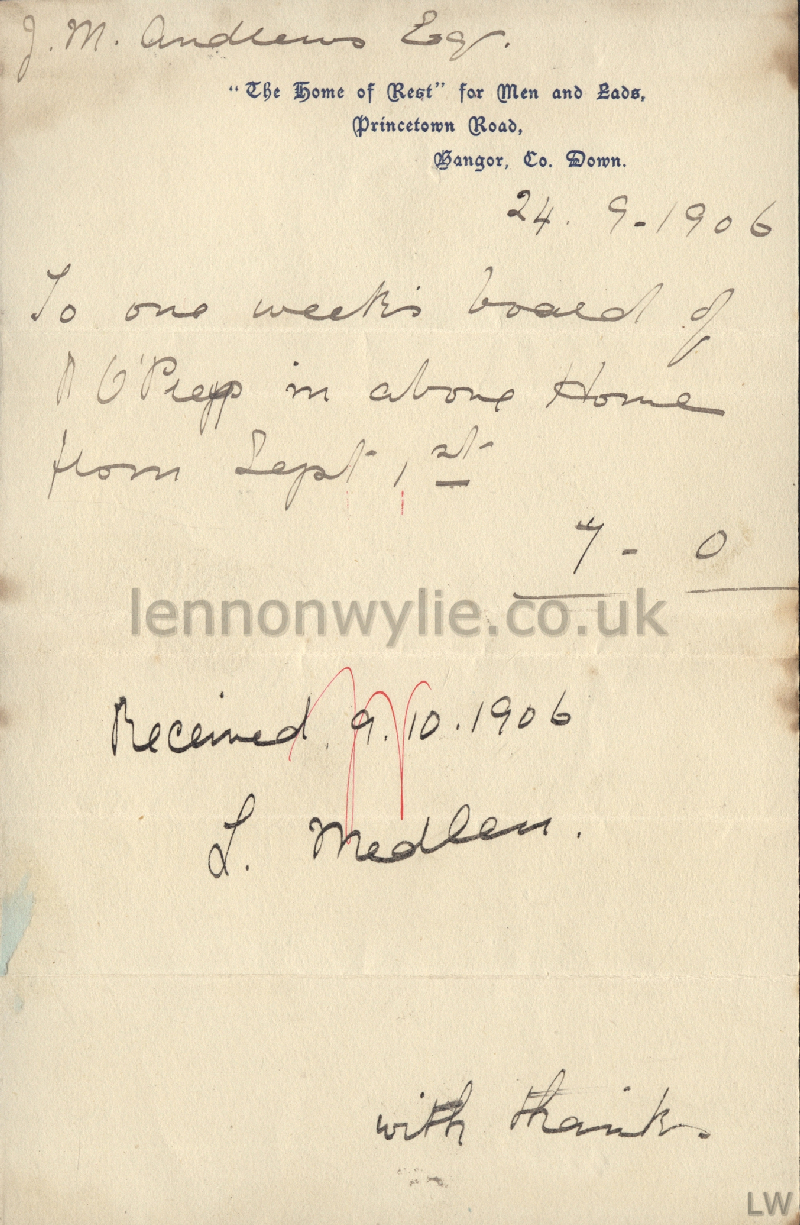 J. M. Andrews Esq.
"The Home of Rest" for Men and Lads,
Princetown Road,
Bangor, Co. Down.
24. 9-1906
To one week's board of
in above Home
from Sept 1st
7 - 0
lennonwylie.co.uk
Received 9.10.1906
L. Medlen.
with thanks
LW